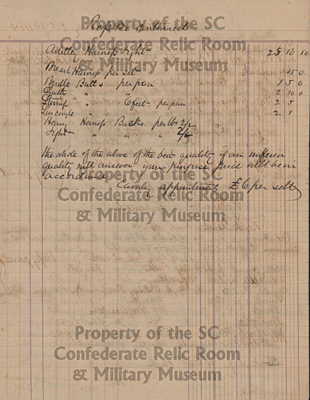 Property of the SC
Confederate Relic Room
& Military Museum
Artillery Harness Eight 25 10 10
Breast Harness per set 15 0
Bridle Butts per pair 7 5 0
Girth " 2 10 0
Stirrup " 2 5
Surcingle " 2 1
Heavy Harness Backs per lbs 2/2
Light " " " 2/4
The whole of the above of the best quality if an inferior
quality will answer your purpose price will be in
accordance
Cavalry appointment £6 per sett
Property of the SC
Confederate Relic Room
& Military Museum
Property of the SC
Confederate Relic Room
& Military Museum